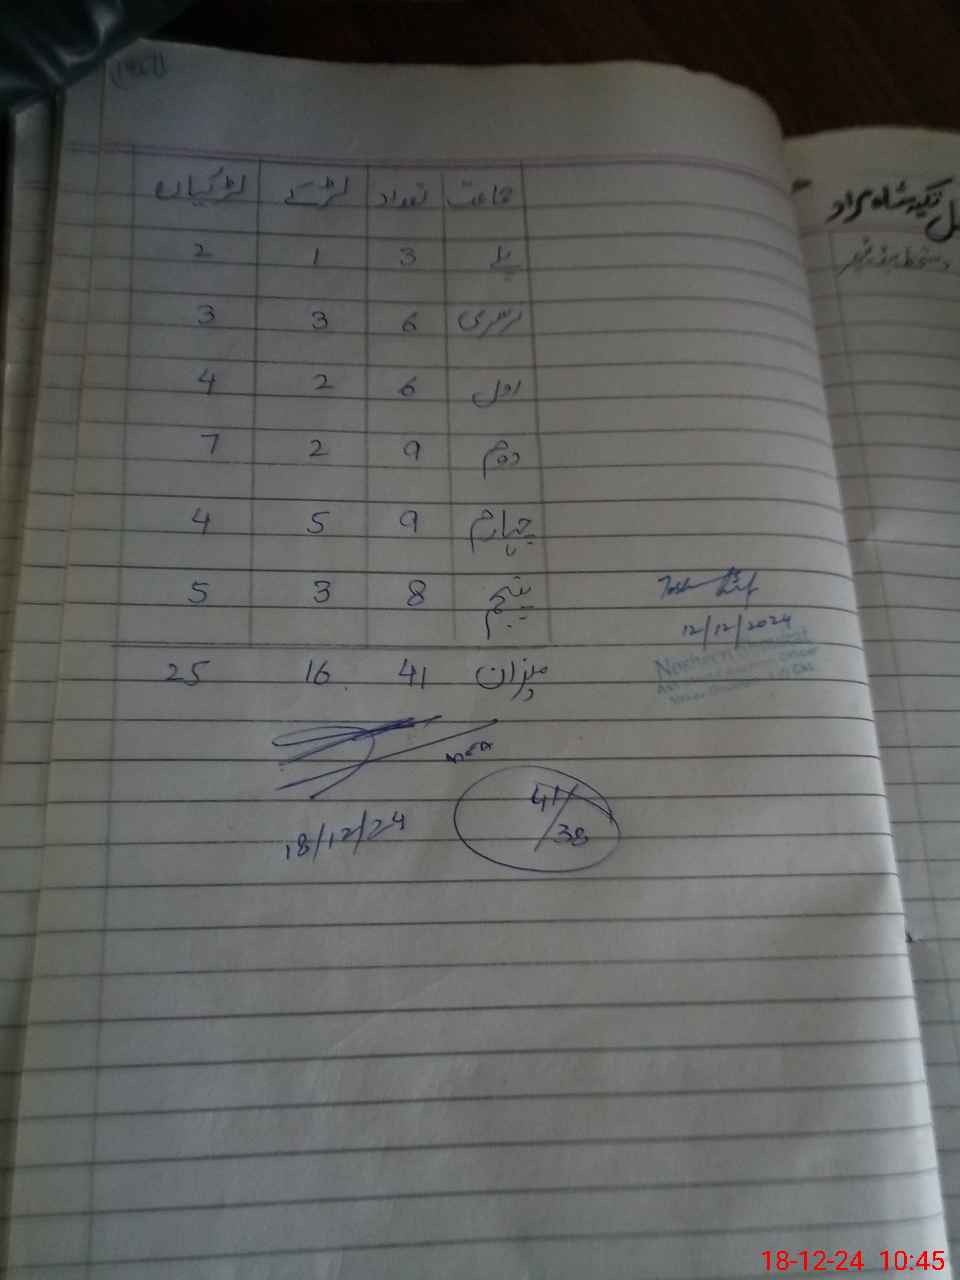 جماعت تعداد لڑکے لڑکیاں
پلے 3 1 2
نرسری 6 3 3
اول 6 2 4
دوم 9 2 7
چہارم 9 5 4
پنجم 8 3 5
میزان 41 16 25
12/12/2024
18/12/24
41/38
تکیہ شاہ مراد
دستخط
18-12-24 10:45